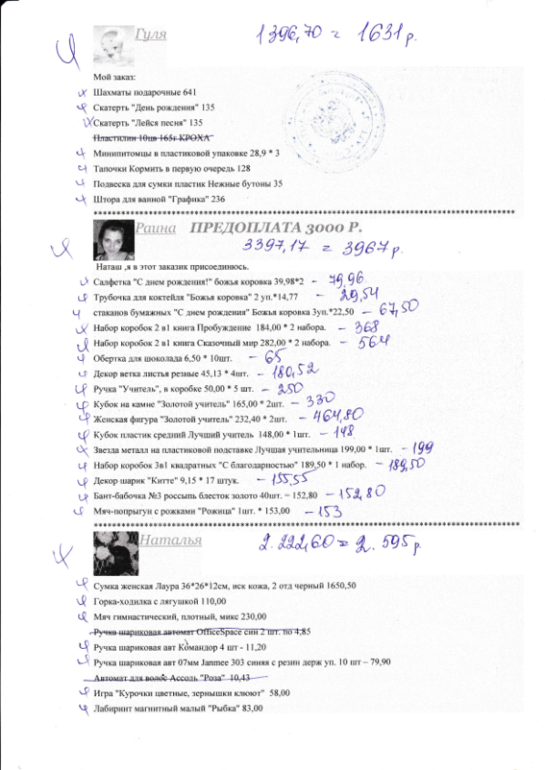 Гуля 1396,70 = 1631 р.
Мой заказ:
Шахматы подарочные 641
Скатерть "День рождения" 135
Скатерть "Лейся песня" 135
Пластилин 10цв 165г КРОХА
Минипитомцы в пластиковой упаковке 28,9 * 3
Тапочки Кормить в первую очередь 128
Подвеска для сумки пластик Нежные бутоны 35
Штора для ванной "Графика" 236
Раина ПРЕДОПЛАТА 3000 Р.
3397,17 = 3967 р.
Наташ ,я в этот заказик присоединюсь.
Салфетка "С днем рождения!" божья коровка 39,98*2 – 79,96
Трубочка для коктейля "Божья коровка" 2 уп.*14,77 – 29,54
стаканов бумажных "С днем рождения" Божья коровка 3уп.*22,50 – 67,50
Набор коробок 2 в1 книга Пробуждение 184,00 * 2 набора. – 368
Набор коробок 2 в1 книга Сказочный мир 282,00 * 2 набора. – 564
Обертка для шоколада 6,50 * 10шт. – 65
Декор ветка листья резные 45,13 * 4шт. – 180,52
Ручка "Учитель", в коробке 50,00 * 5 шт. – 250
Кубок на камне "Золотой учитель" 165,00 * 2шт. – 330
Женская фигура "Золотой учитель" 232,40 * 2шт. – 464,80
Кубок пластик средний Лучший учитель 148,00 * 1шт. – 148
Звезда металл на пластиковой подставке Лучшая учительница 199,00 * 1шт. – 199
Набор коробок 3в1 квадратных "С благодарностью" 189,50 * 1 набор. – 189,50
Декор шарик "Китте" 9,15 * 17 штук. – 155,55
Бант-бабочка №3 россыпь блесток золото 40шт. – 152,80 – 152,80
Мяч-попрыгун с рожками "Рожица" 1шт. * 153,00 – 153
Наталья 2.222,60 = 2.595 р.
Сумка женская Лаура 36*26*12см, иск кожа, 2 отд черный 1650,50
Горка-ходилка с лягушкой 110,00
Мяч гимнастический, плотный, микс 230,00
Ручка шариковая автомат OfficeSpace син 2 шт. по 4,85
Ручка шариковая авт Командор 4 шт - 11,20
Ручка шариковая авт 07мм Janmee 303 синяя с резин держ уп. 10 шт – 79,90
Автомат для волос Ассоль "Роза" 10,43
Игра "Курочки цветные, зернышки клюют" 58,00
Лабиринт магнитный малый "Рыбка" 83,00